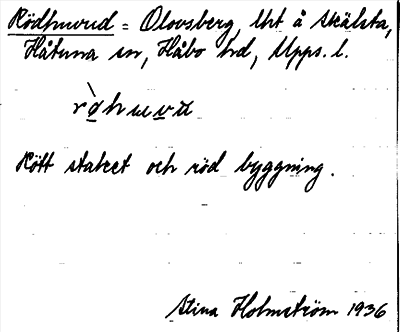 Rödhuvud = Olovsberg, lht å Skälsta,
Håtuna sn, Håbo hd, Upps. l.
Rött staket och röd byggning.
Stina Holmström 1936